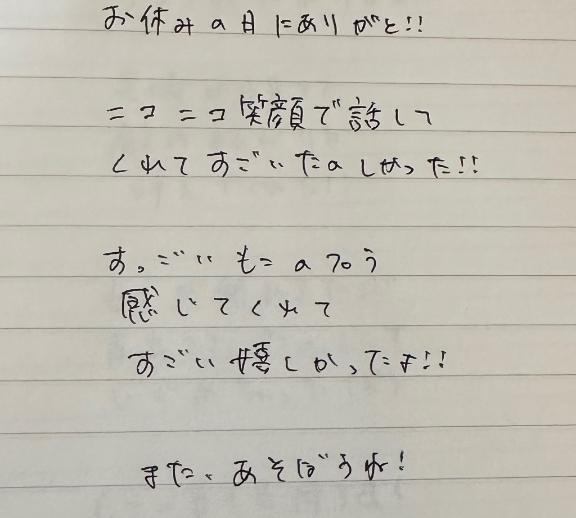 お休みの日にありがと!!
ニコニコ笑顔で話して
くれてすごいたのしかった!!
感じてくれて
すごい嬉しかったよ!!
また、あそぼうね!